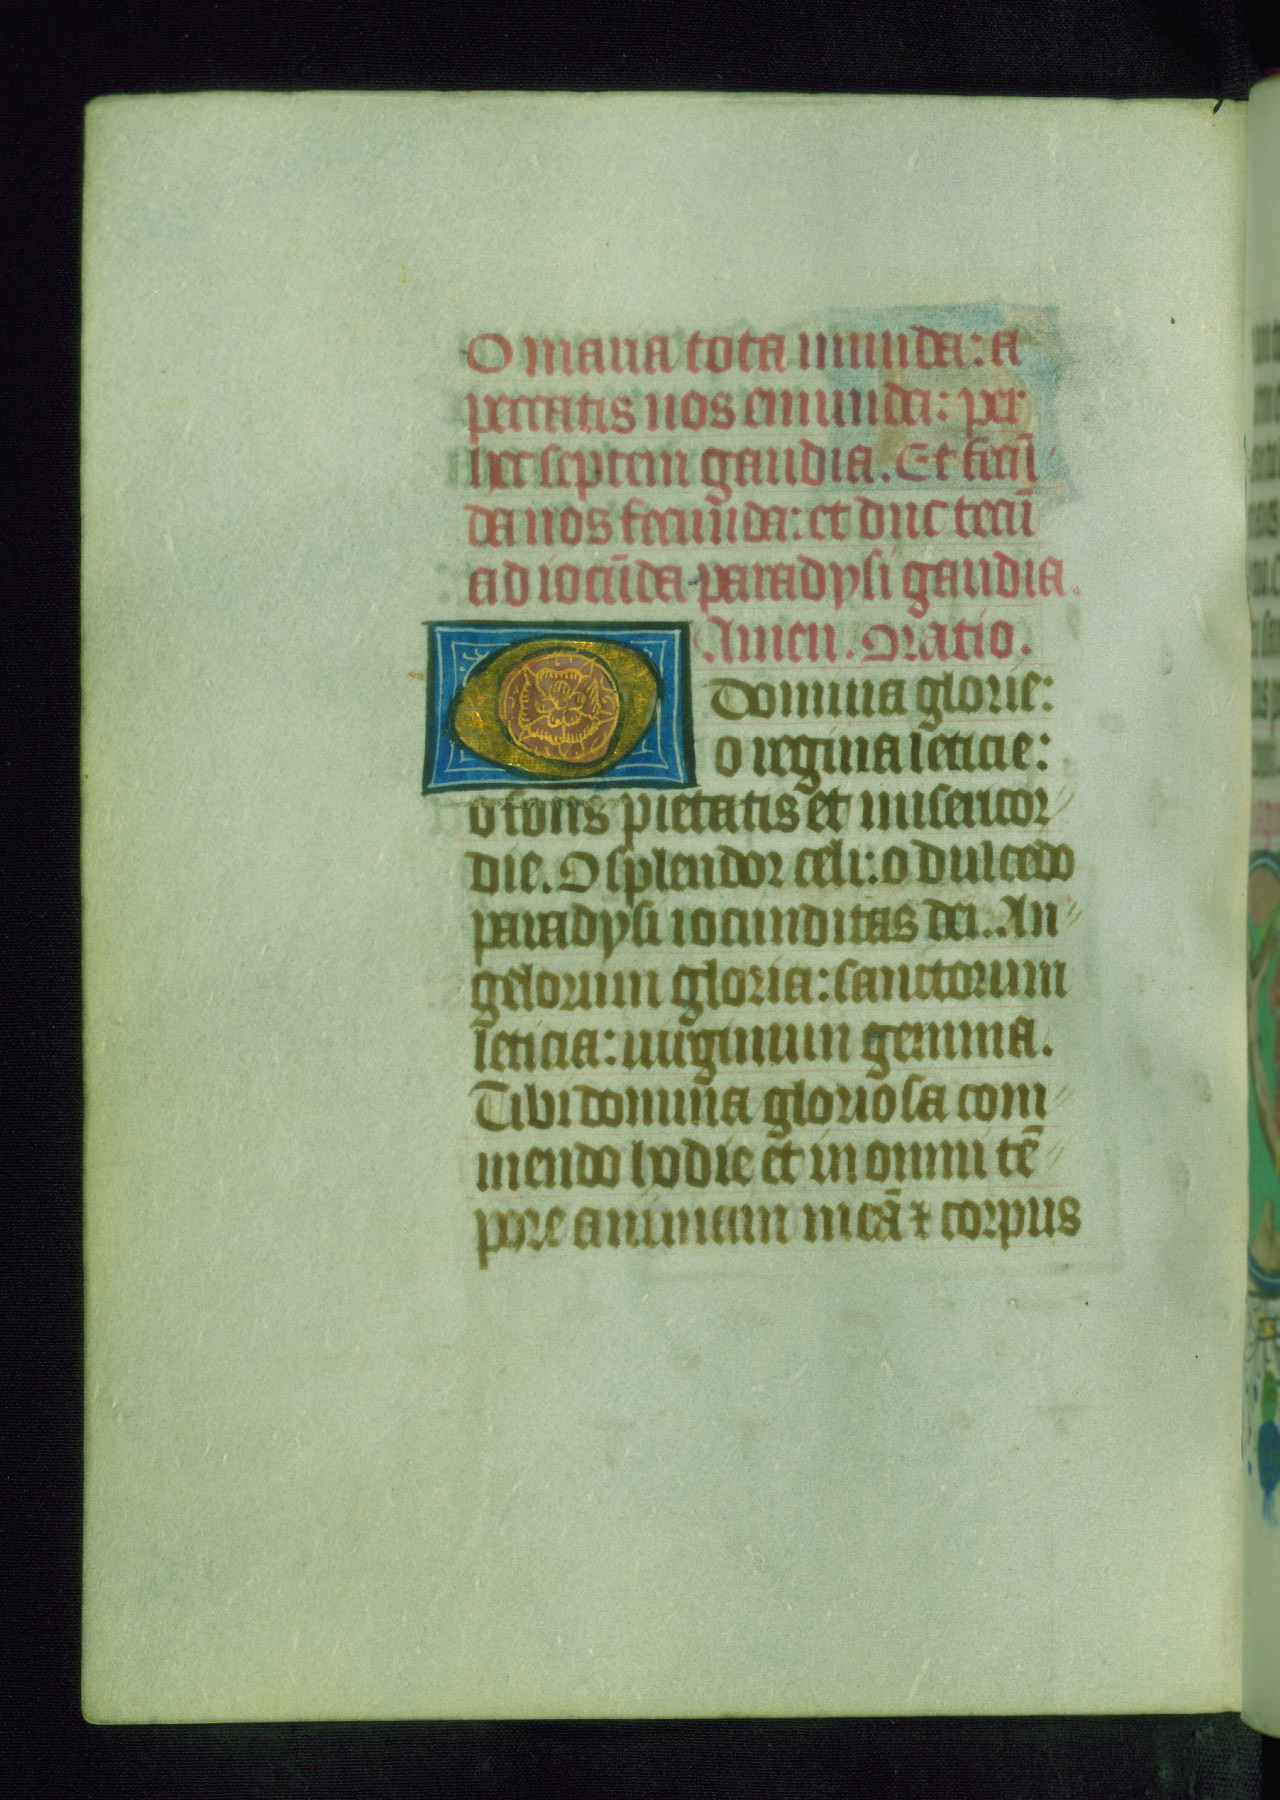 O maria tota munda: a
peccatis nos emunda: per
hec septem gaudia. Et fecū
da nos fecunda: et duc tecū
ad iocūda paradysi gaudia.
Amen. Oratio.
O Domina glorie:
o regina leticie:
o fons pietatis et misericor
die. O splendor celi: o dulcedo
paradysi iocunditas dei. An
gelorum gloria: sanctorum
leticia: uirginum gemma.
Tibi domina gloriosa com
mendo hodie et in omni tē
pore animam meā ⁊ corpus